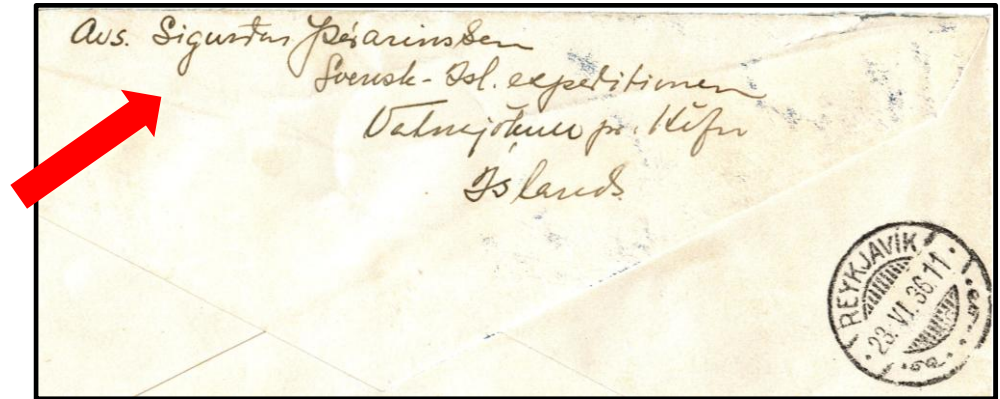 Avs. Sigurdur Þórarinsson
Svensk-Isl. expeditionen
Vatnajökull pr. Höfn
Island
REYKJAVÍK
23. VI. 36. 11